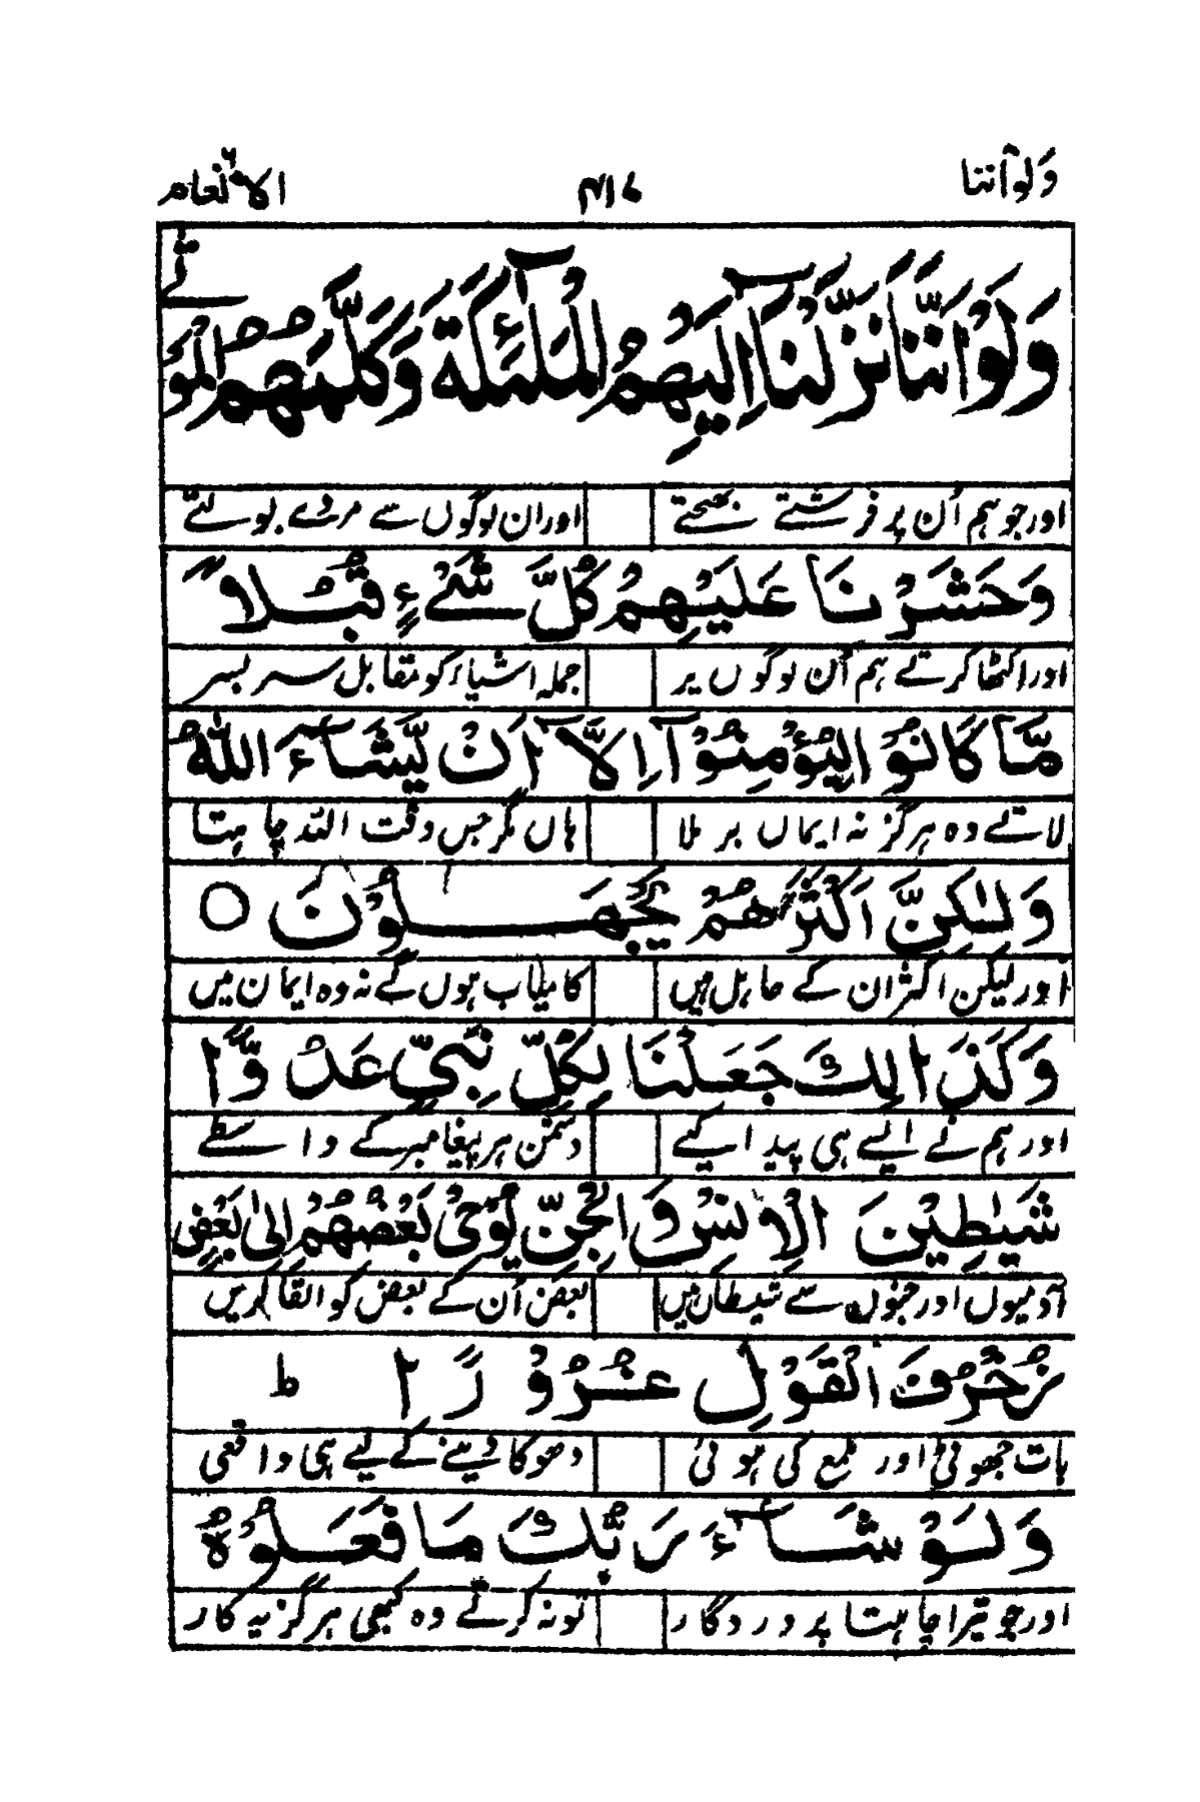 ولو اننا ۴۱۷ الانعام ۶
وَلَوْ اَنَّنَا نَزَّلْنَآ اِلَيْهِمُ الْمَلٰٓئِكَةَ وَكَلَّمَهُمُ الْمَوْتٰى
اور جو ہم اُن پر فرشتے بھیجتے اور ان لوگوں سے مردے بولتے
وَحَشَرْنَا عَلَيْهِمْ كُلَّ شَیْءٍ قُبُلًا
اور اکٹھا کرتے ہم اُن لوگوں پر جملہ اشیاء کو مقابل سر بسر
مَّا كَانُوْا لِيُؤْمِنُوْٓا اِلَّآ اَنْ يَّشَآءَ اللّٰهُ
لاتے وہ ہرگز نہ ایماں بر ملا ہاں مگر جس وقت اللہ چاہتا
وَلٰكِنَّ اَكْثَرَهُمْ يَجْهَلُوْنَ ○
اور لیکن اکثر ان کے جاہل ہیں کامیاب ہوں گے نہ وہ ایمان میں
وَكَذٰلِكَ جَعَلْنَا لِكُلِّ نَبِیٍّ عَدُوًّا
اور ہم نے ایسے ہی پیدا کیے دشمن ہر پیغامبر کے واسطے
شَيٰطِيْنَ الْاِنْسِ وَالْجِنِّ يُوْحِیْ بَعْضُهُمْ اِلٰى بَعْضٍ
آدمیوں اور جنوں سے شیطاں ہیں بعض اُن کے بعض کو القا کریں
زُخْرُفَ الْقَوْلِ غُرُوْرًا ط
بات جھوٹی اور طمع کی ہوئی دھوکا دینے کے لیے ہی واقعی
وَلَوْ شَآءَ رَبُّكَ مَا فَعَلُوْهُ
اور جو تیرا چاہتا پروردگار تو نہ کرتے وہ کبھی ہرگز یہ کار